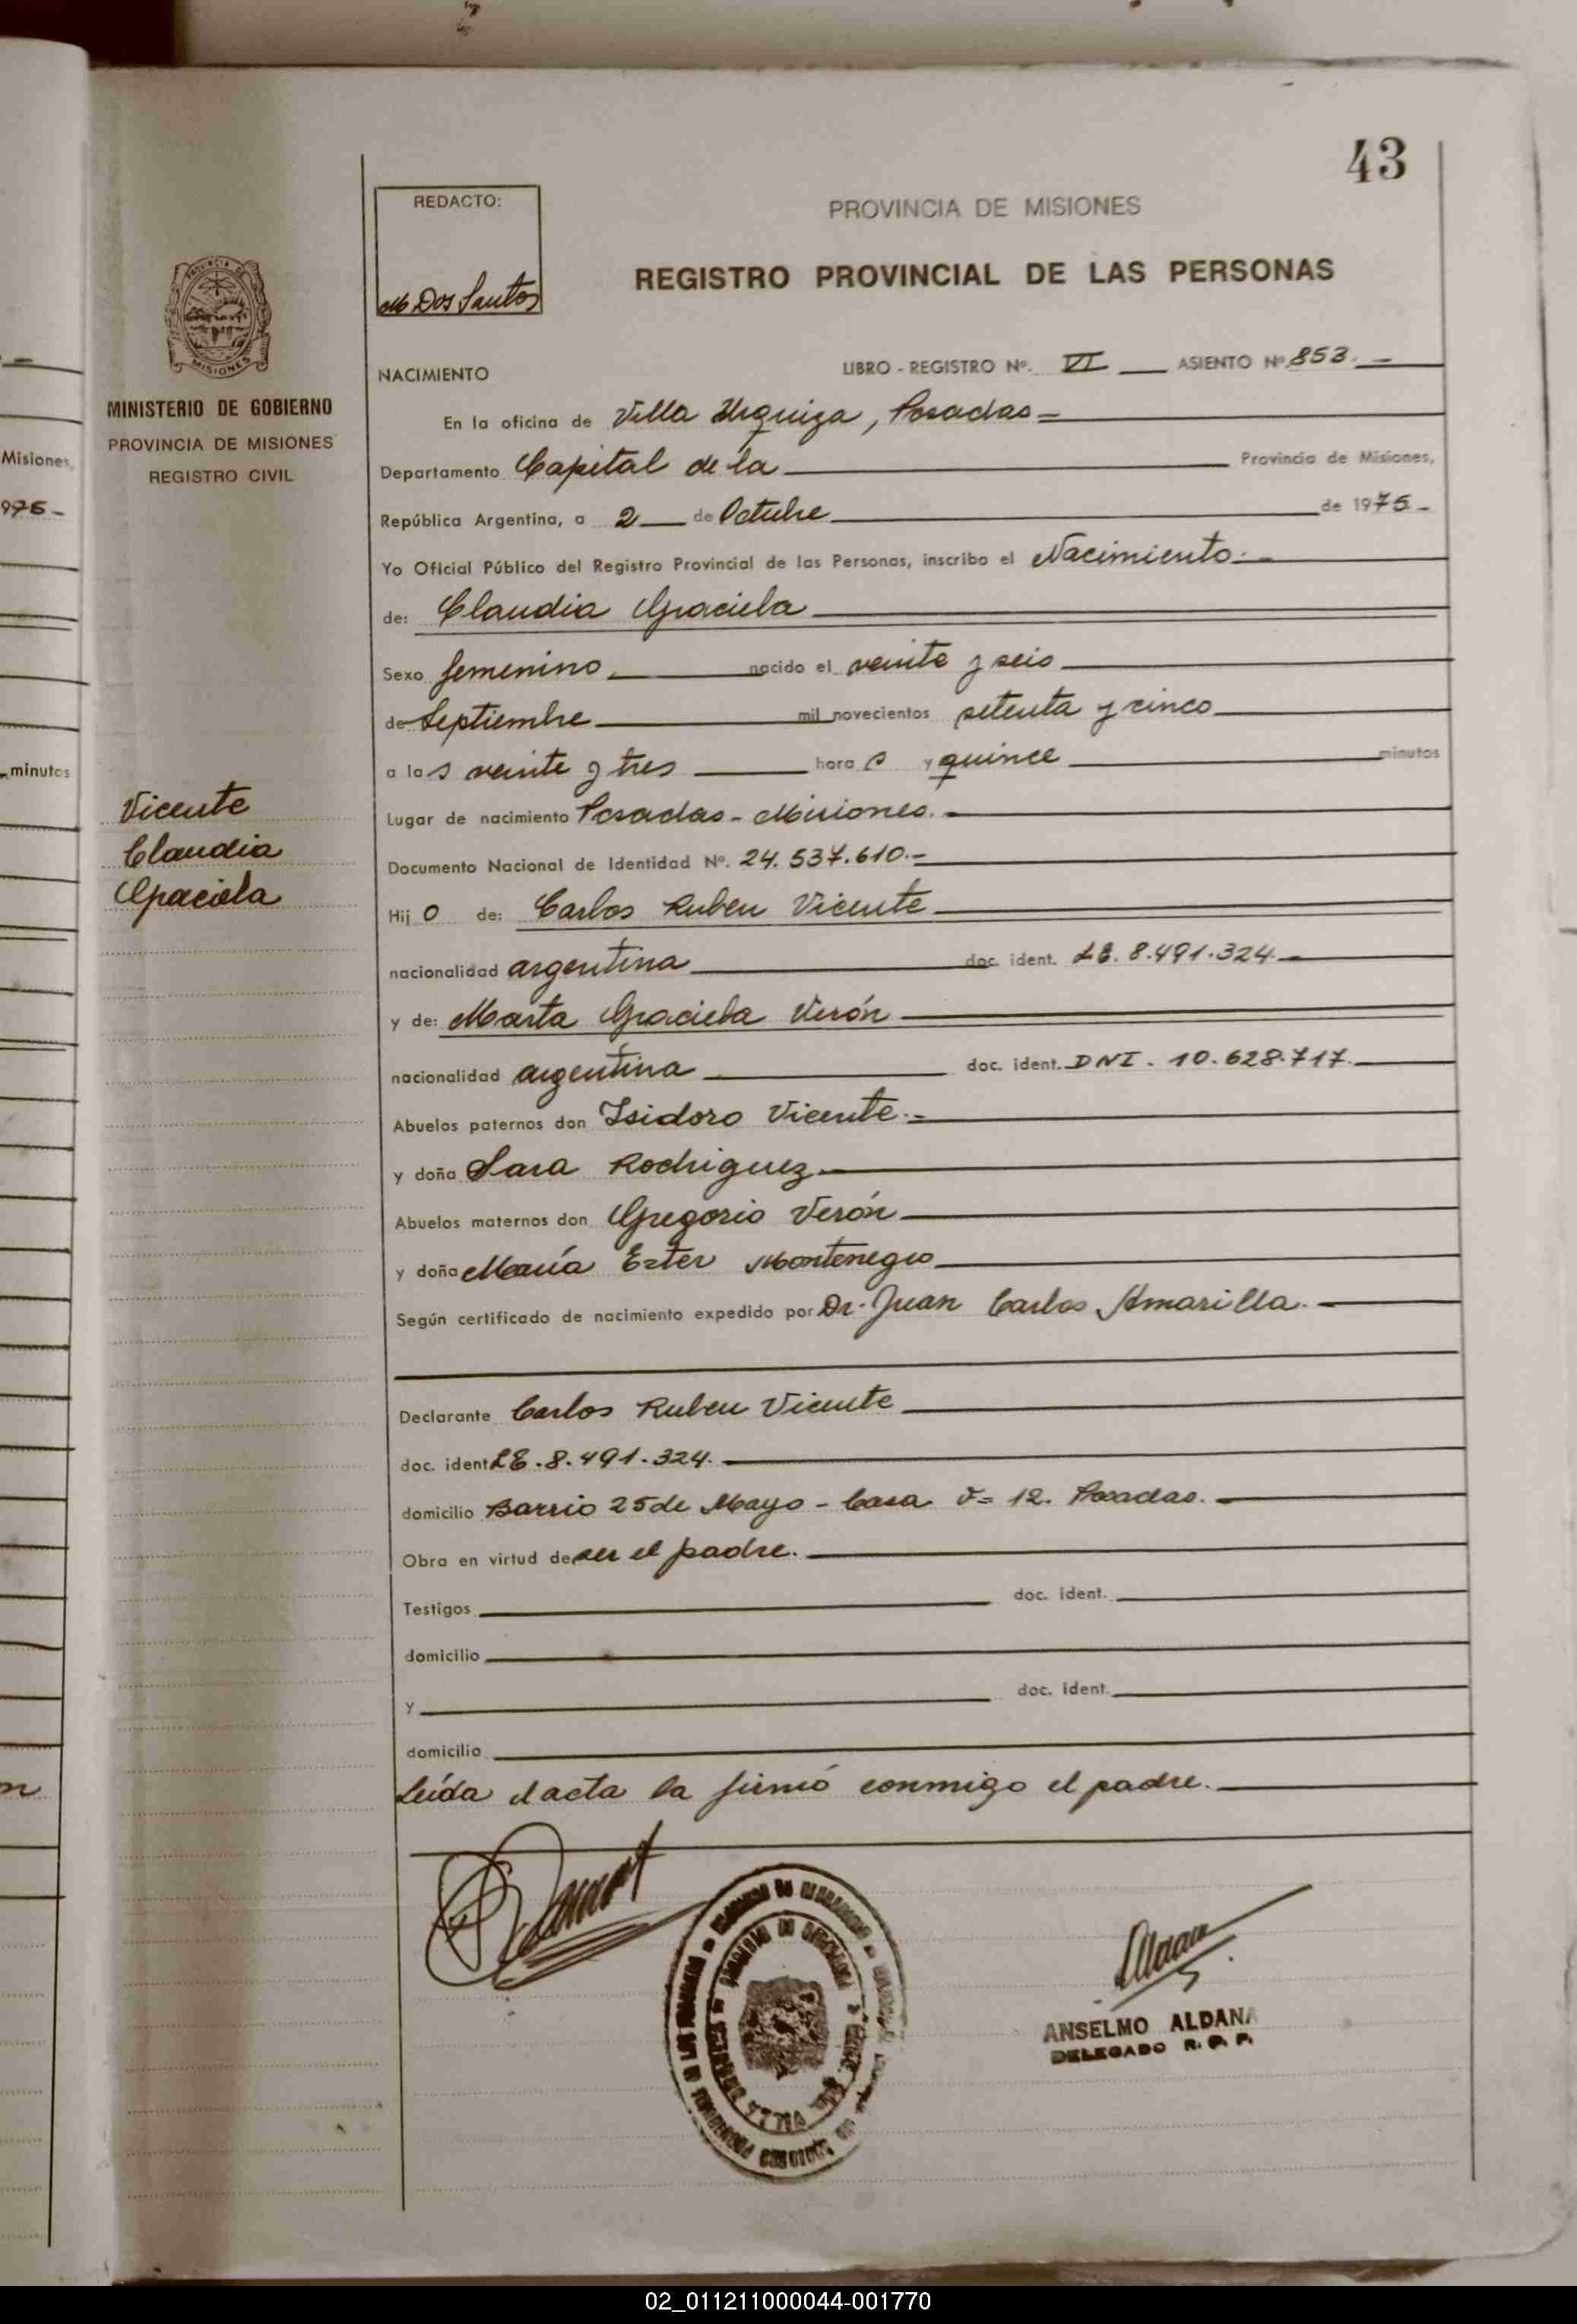 43
REDACTO:
M Dos Santos
PROVINCIA DE MISIONES
REGISTRO PROVINCIAL DE LAS PERSONAS
MINISTERIO DE GOBIERNO
PROVINCIA DE MISIONES
REGISTRO CIVIL
NACIMIENTO LIBRO - REGISTRO Nº. VI ASIENTO Nº 853.
En la oficina de Villa Urquiza, Posadas =
Departamento Capital de la Provincia de Misiones,
República Argentina, a 2 de Octubre de 1975 -
Yo Oficial Público del Registro Provincial de las Personas, inscribo el Nacimiento.
de: Claudia Graciela
Sexo femenino nacido el veinte y seis
de Septiembre mil novecientos setenta y cinco
a las veinte y tres horas y quince minutos
Lugar de nacimiento Posadas - Misiones. -
Documento Nacional de Identidad Nº. 24.537.610.-
Vicente
Claudia
Graciela
Hijo de: Carlos Ruben Vicente
nacionalidad argentina doc. ident. LE. 8.491.324.
y de: Marta Graciela Verón
nacionalidad argentina doc. ident. DNI - 10.628.717.
Abuelos paternos don Isidoro Vicente.-
y doña Sara Rodriguez
Abuelos maternos don Gregorio Verón
y doña María Ester Montenegro
Según certificado de nacimiento expedido por Dr. Juan Carlos Amarilla. -
Declarante Carlos Ruben Vicente
doc. ident LE. 8.491.324.
domicilio Barrio 25 de Mayo - Casa 12. Posadas. -
Obra en virtud de ser el padre.
Testigos doc. ident.
domicilio
y doc. ident.
domicilio
Leída el acta la firmó conmigo el padre.
ANSELMO ALDANA
DELEGADO R. P. P.
Misiones,
975 -
minutos
02_011211000044-001770